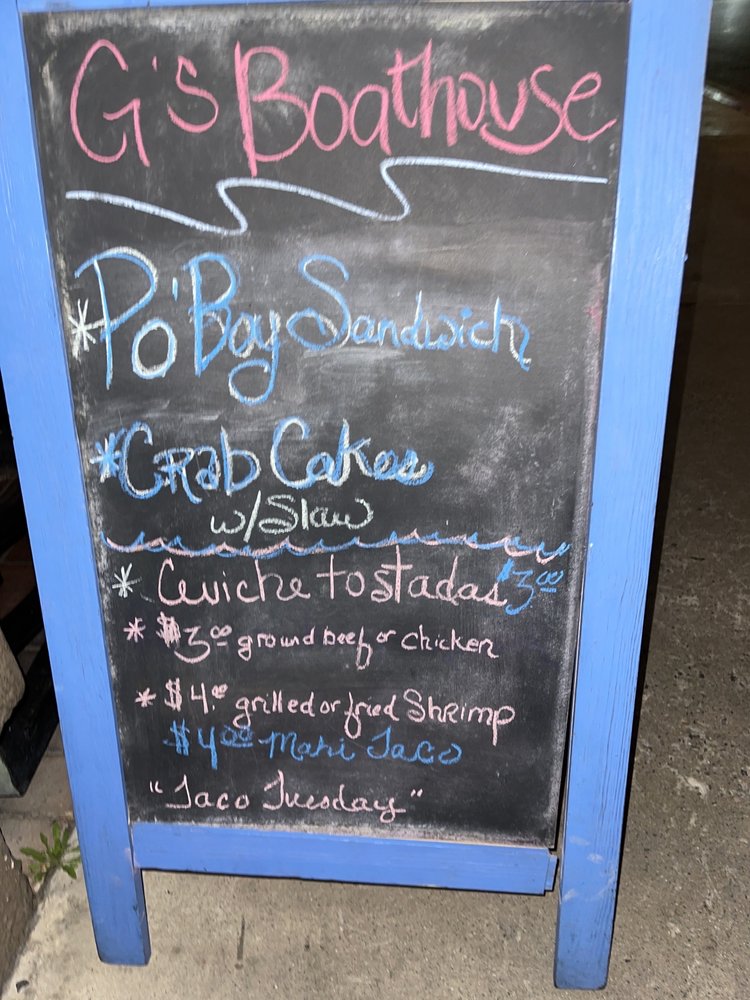 G's Boathouse
* Po'Boy Sandwich
* CRab Cakes
w/Slaw
* Ceviche tostadas $3.00
* $3.00 ground beef or chicken
* $4.00 grilled or fried ShRimp
$4.00 Mahi Taco
"Taco Tuesday"